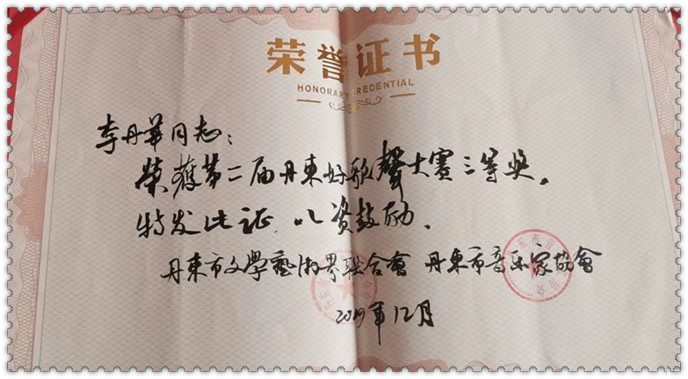 荣誉证书
HONORARY CREDENTIAL
李丹華同志：
荣獲第二届丹東好歌聲大赛三等奖。
特发此证，以资鼓励．
丹東市文學藝術界联合會 丹東市音乐家協會
2019年12月